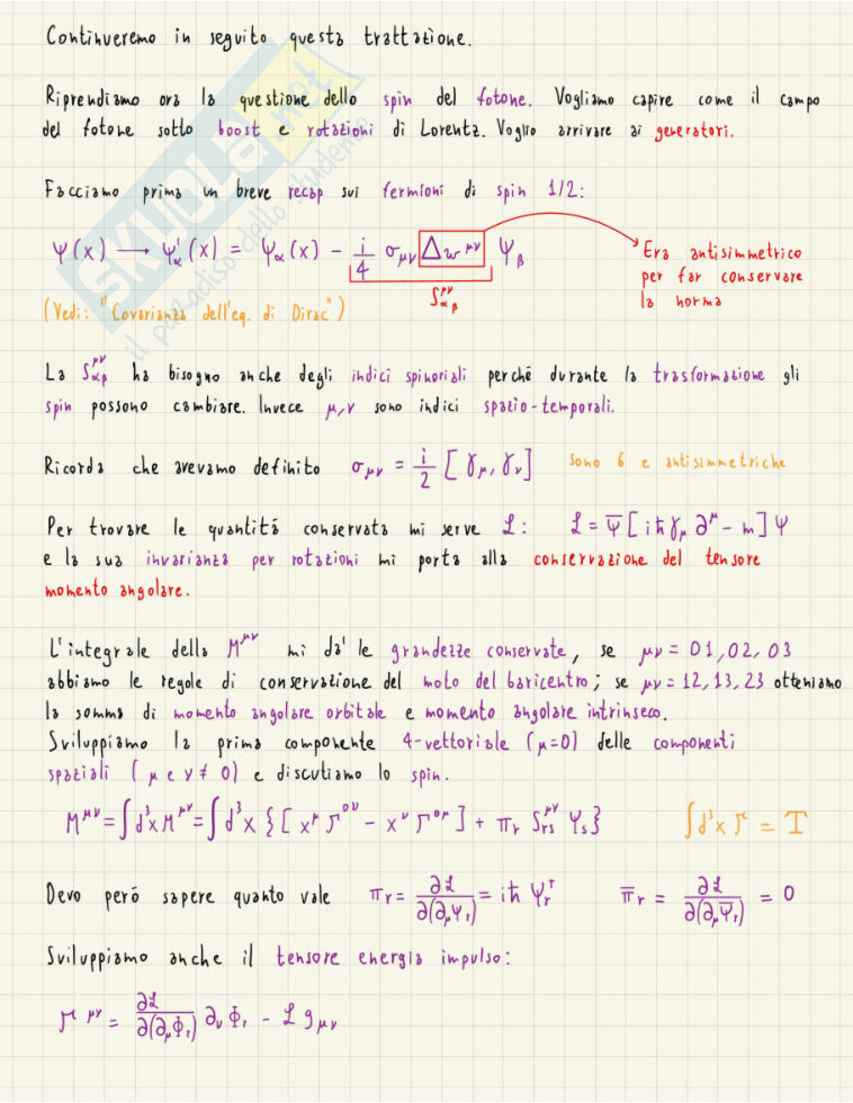 Continueremo in seguito questa trattazione.
Riprendiamo ora la questione dello spin del fotone. Vogliamo capire come il campo
del fotone sotto boost e rotazioni di Lorentz. Voglio arrivare ai generatori.
Facciamo prima un breve recap sui fermioni di spin 1/2:
ψ(x) → ψ'_α(x) = ψ_α(x) - i/4 σ_μν Δω^μν ψ_β
S^μν_αβ
Era antisimmetrico
per far conservare
la norma
(Vedi: "Covarianza dell'eq. di Dirac")
La S^μν_αβ ha bisogno anche degli indici spinoriali perché durante la trasformazione gli
spin possono cambiare. Invece μ,ν sono indici spazio-temporali.
Ricorda che avevamo definito σ_μν = i/2 [γ_μ, γ_ν] sono 6 e antisimmetriche
Per trovare le quantitá conservata mi serve ℒ: ℒ = ψ̄ [iħγ_μ ∂^μ - m] ψ
e la sua invarianza per rotazioni mi porta alla conservazione del tensore
momento angolare.
L'integrale della M^μν mi da' le grandezze conservate, se μν = 01,02,03
abbiamo le regole di conservazione del moto del baricentro; se μν = 12,13,23 otteniamo
la somma di momento angolare orbitale e momento angolare intrinseco.
Sviluppiamo la prima componente 4-vettoriale (μ=0) delle componenti
spaziali (μ e ν ≠ 0) e discutiamo lo spin.
M^μν = ∫d³x M^μν = ∫d³x {[x^μ 𝒯^0ν - x^ν 𝒯^0μ] + π_r S^μν_rs ψ_s} ∫d³x 𝒯 = T
Devo peró sapere quanto vale π_r = ∂ℒ/∂(∂_μψ_r) = iħ ψ_r^† π̄_r = ∂ℒ/∂(∂_μψ̄_r) = 0
Sviluppiamo anche il tensore energia impulso:
𝒯^μν = ∂ℒ/∂(∂_μΦ_r) ∂_νΦ_r - ℒ g_μν
SKUOLA.net
il paradiso dello studente